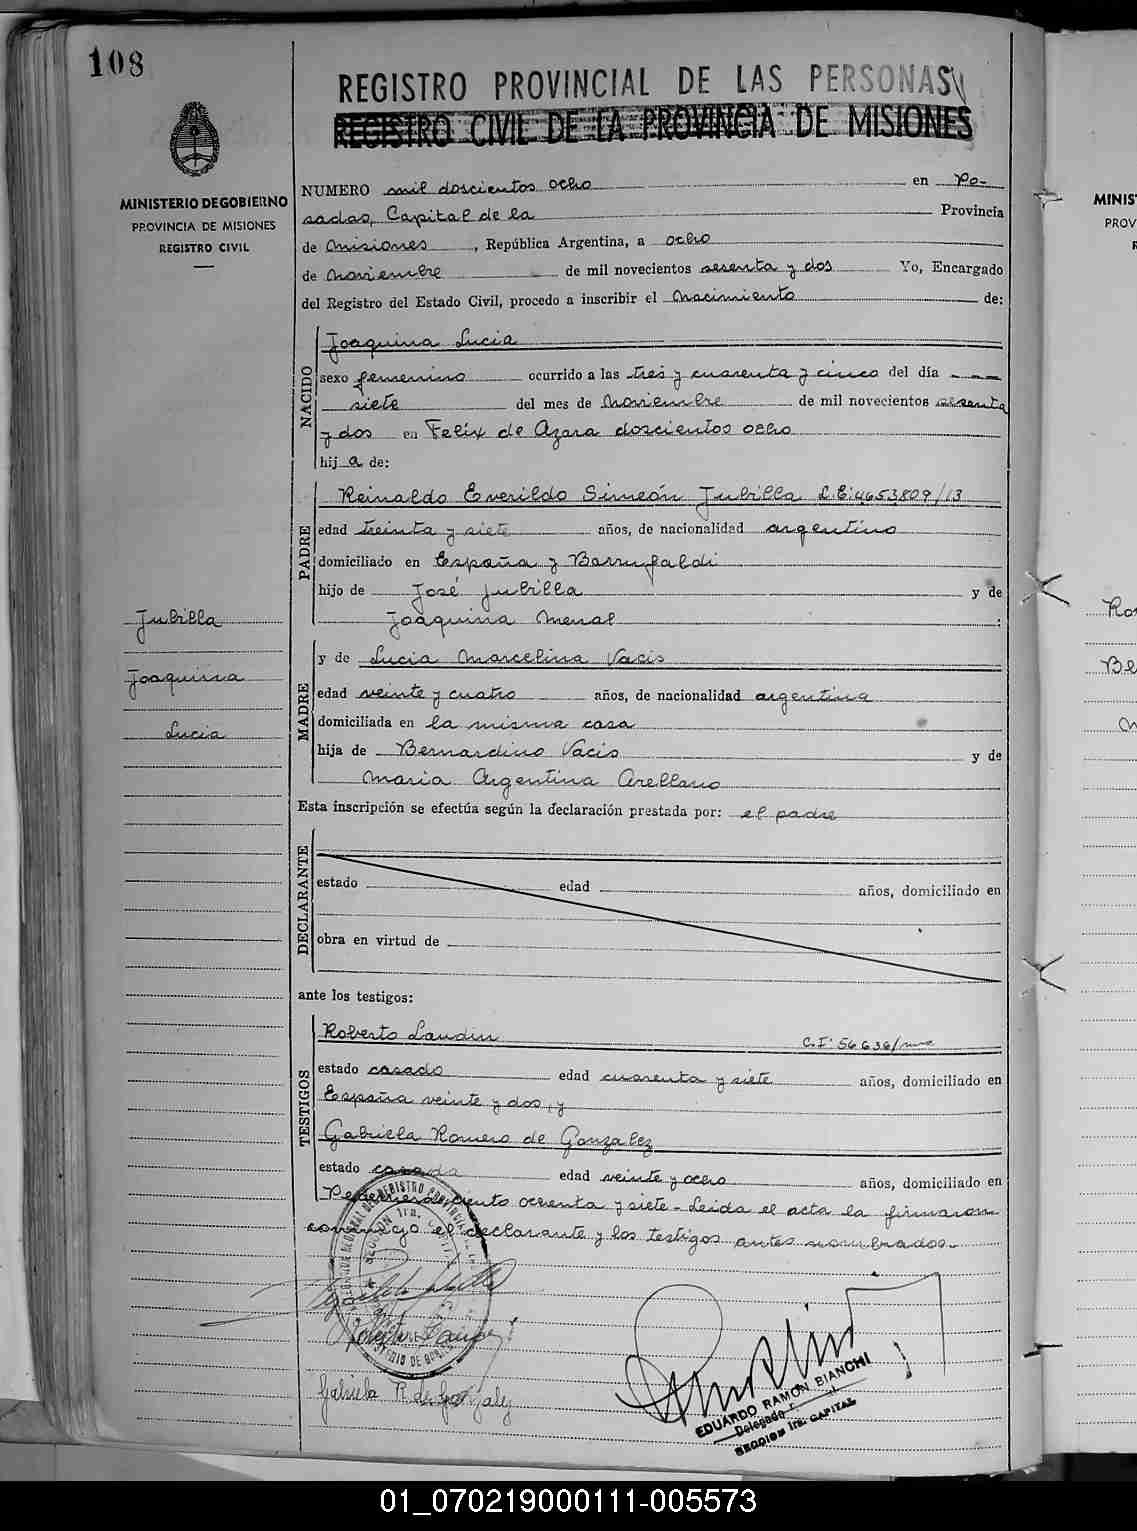 108
REGISTRO PROVINCIAL DE LAS PERSONAS
REGISTRO CIVIL DE LA PROVINCIA DE MISIONES
MINISTERIO DE GOBIERNO
PROVINCIA DE MISIONES
REGISTRO CIVIL
NUMERO mil doscientos ocho en Po-
sadas, Capital de la Provincia
de Misiones, República Argentina, a ocho
de Noviembre de mil novecientos sesenta y dos Yo, Encargado
del Registro del Estado Civil, procedo a inscribir el Nacimiento de:
NACIDO
Joaquina Lucia
sexo femenino ocurrido a las tres y cuarenta y cinco del día ---
siete del mes de Noviembre de mil novecientos sesenta
y dos en Felix de Azara doscientos ocho
hij a de:
PADRE
Reinaldo Everildo Simeón Jubilla L.E:4653809/13
edad treinta y siete años, de nacionalidad argentino
domiciliado en España y Barrufaldi
hijo de José Jubilla y de
Joaquina Menal :
MADRE
y de Lucia Marcelina Vacis
edad veinte y cuatro años, de nacionalidad argentina
domiciliada en la misma casa
hija de Bernardino Vacis y de
Maria Argentina Arellano
Jubilla
Joaquina
Lucia
Esta inscripción se efectúa según la declaración prestada por: el padre
DECLARANTE
estado edad años, domiciliado en
obra en virtud de
ante los testigos:
TESTIGOS
Roberto Landin C.I: 56636/mns
estado casado edad cuarenta y siete años, domiciliado en
España veinte y dos, y
Gabriela Romero de Gonzalez
estado casada edad veinte y ocho años, domiciliado en
ciento ochenta y siete - Leida el acta la firmaron
conmigo el declarante y los testigos antes nombrados.-
Gabriela R. de Gonzalez
EDUARDO RAMON BIANCHI
Delegado
SECCION 1ra. CAPITAL
MINIS
PROV
R
Be
01_070219000111-005573